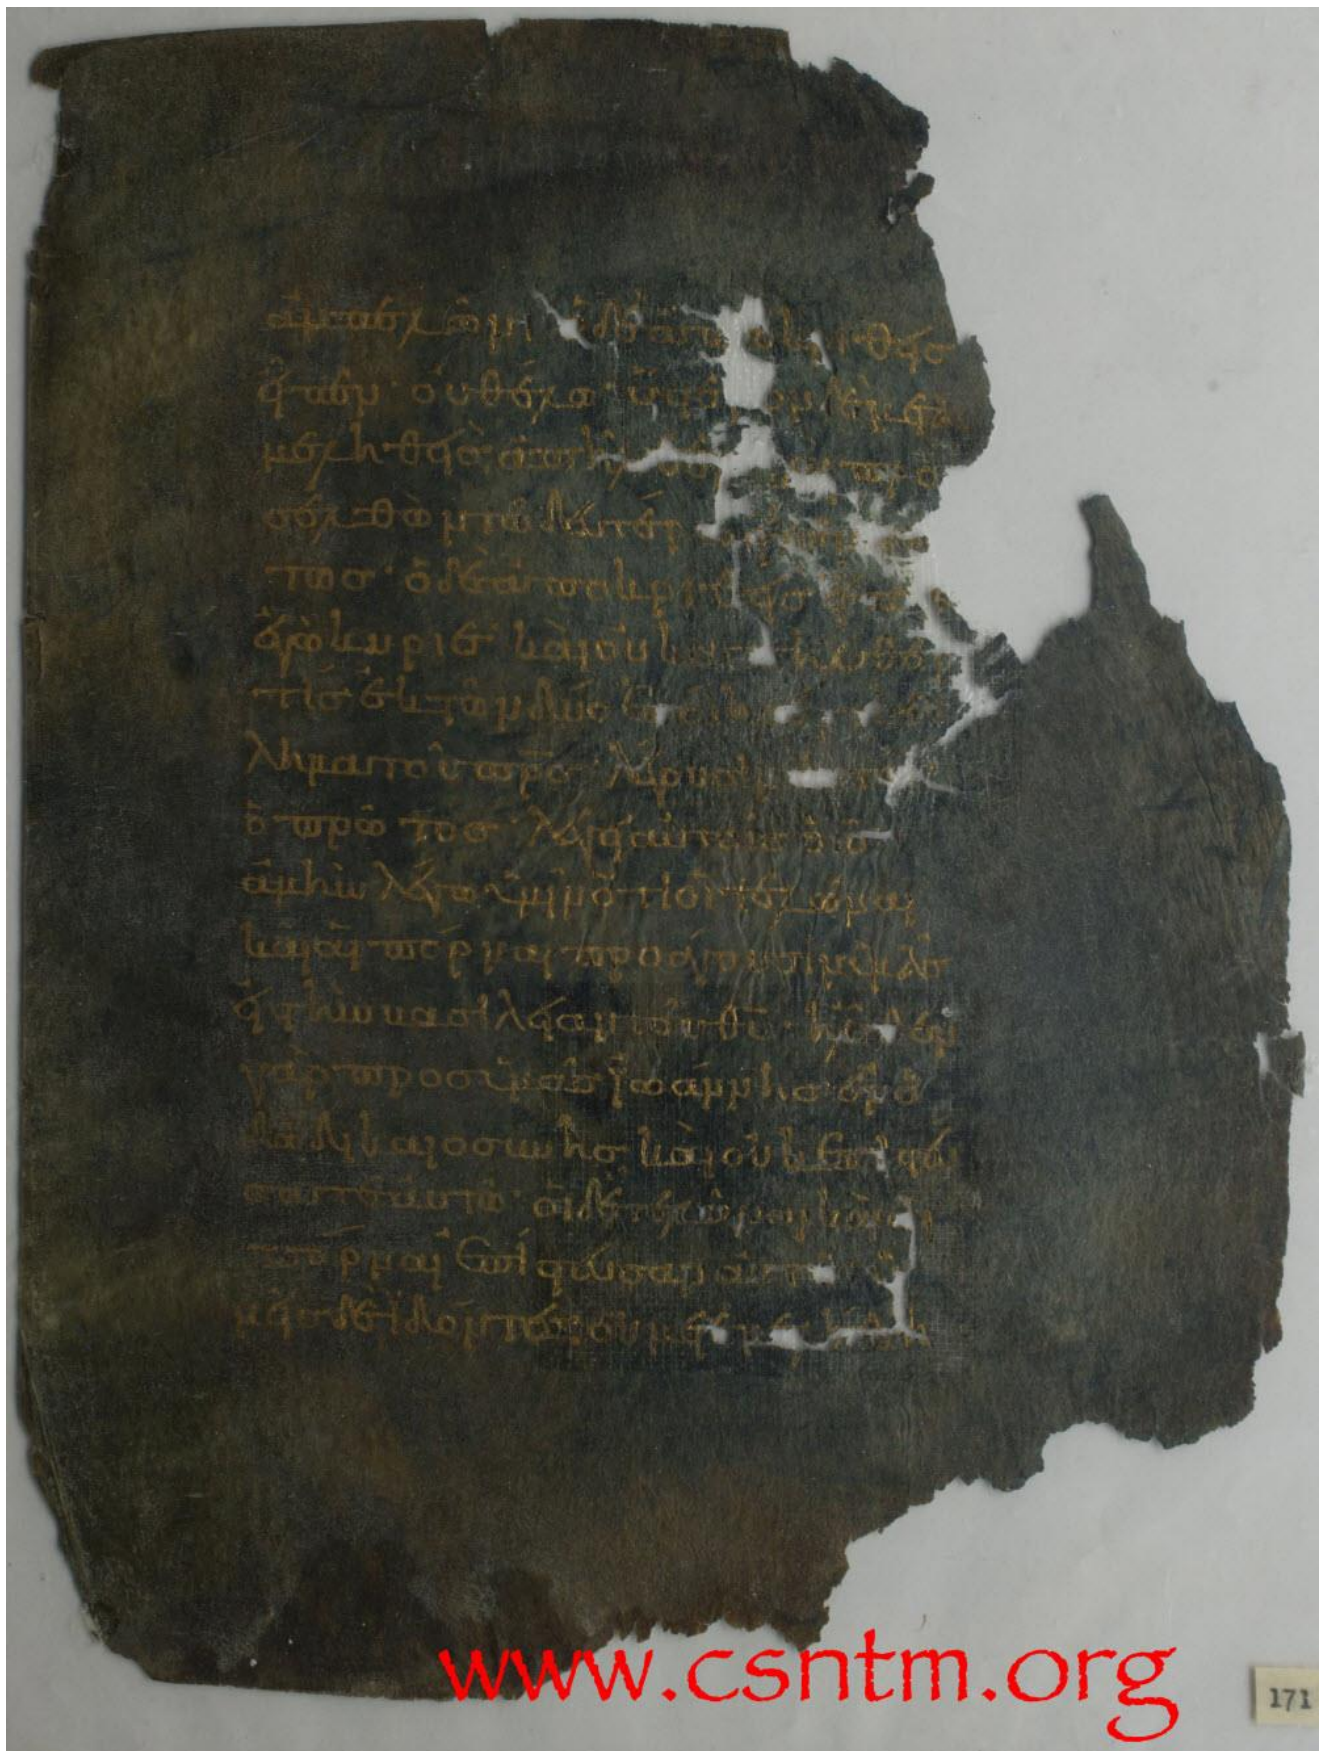 ἀμπελῶνι ὁ δὲ ἀποκριθεὶς
εἶπεν· οὐ θέλω· ὕστερον δὲ
μεληθεὶς ἀπῆλθεν· προ
σελθὼν τῶ δευτέρ
τως· ὁ δὲ ἀποκριθεὶς
ἐγὼ κύριε· καὶ οὐκ ἀπῆλθεν
τίς ἐκ τῶν δύο ἐποίησε τὸ θέ
λημα τοῦ πρ̅σ· λέγουσιν αὐτῶ
ὁ πρῶτος· λέγει αὐτοῖς ὁ ι̅ς
ἀμὴν λέγω ὑμῖν ὅτι οἱ τελῶναι
καὶ αἱ πόρναι προάγουσιν ὑμᾶς
εἰς τὴν βασιλείαν τοῦ θ̅υ· ἦλθεν
γὰρ πρὸς ὑμᾶς ἰωάννης ἐν ὁ
δῶ δικαιοσύνης καὶ οὐκ ἐπιστεύ
σατε αὐτῶ· οἱ δὲ τελῶναι καὶ αἱ
πόρναι ἐπίστευσαν αὐτῶ ὑ
μεῖς δὲ ἰδόντες οὐ μετεμελήθη
www.csntm.org
171